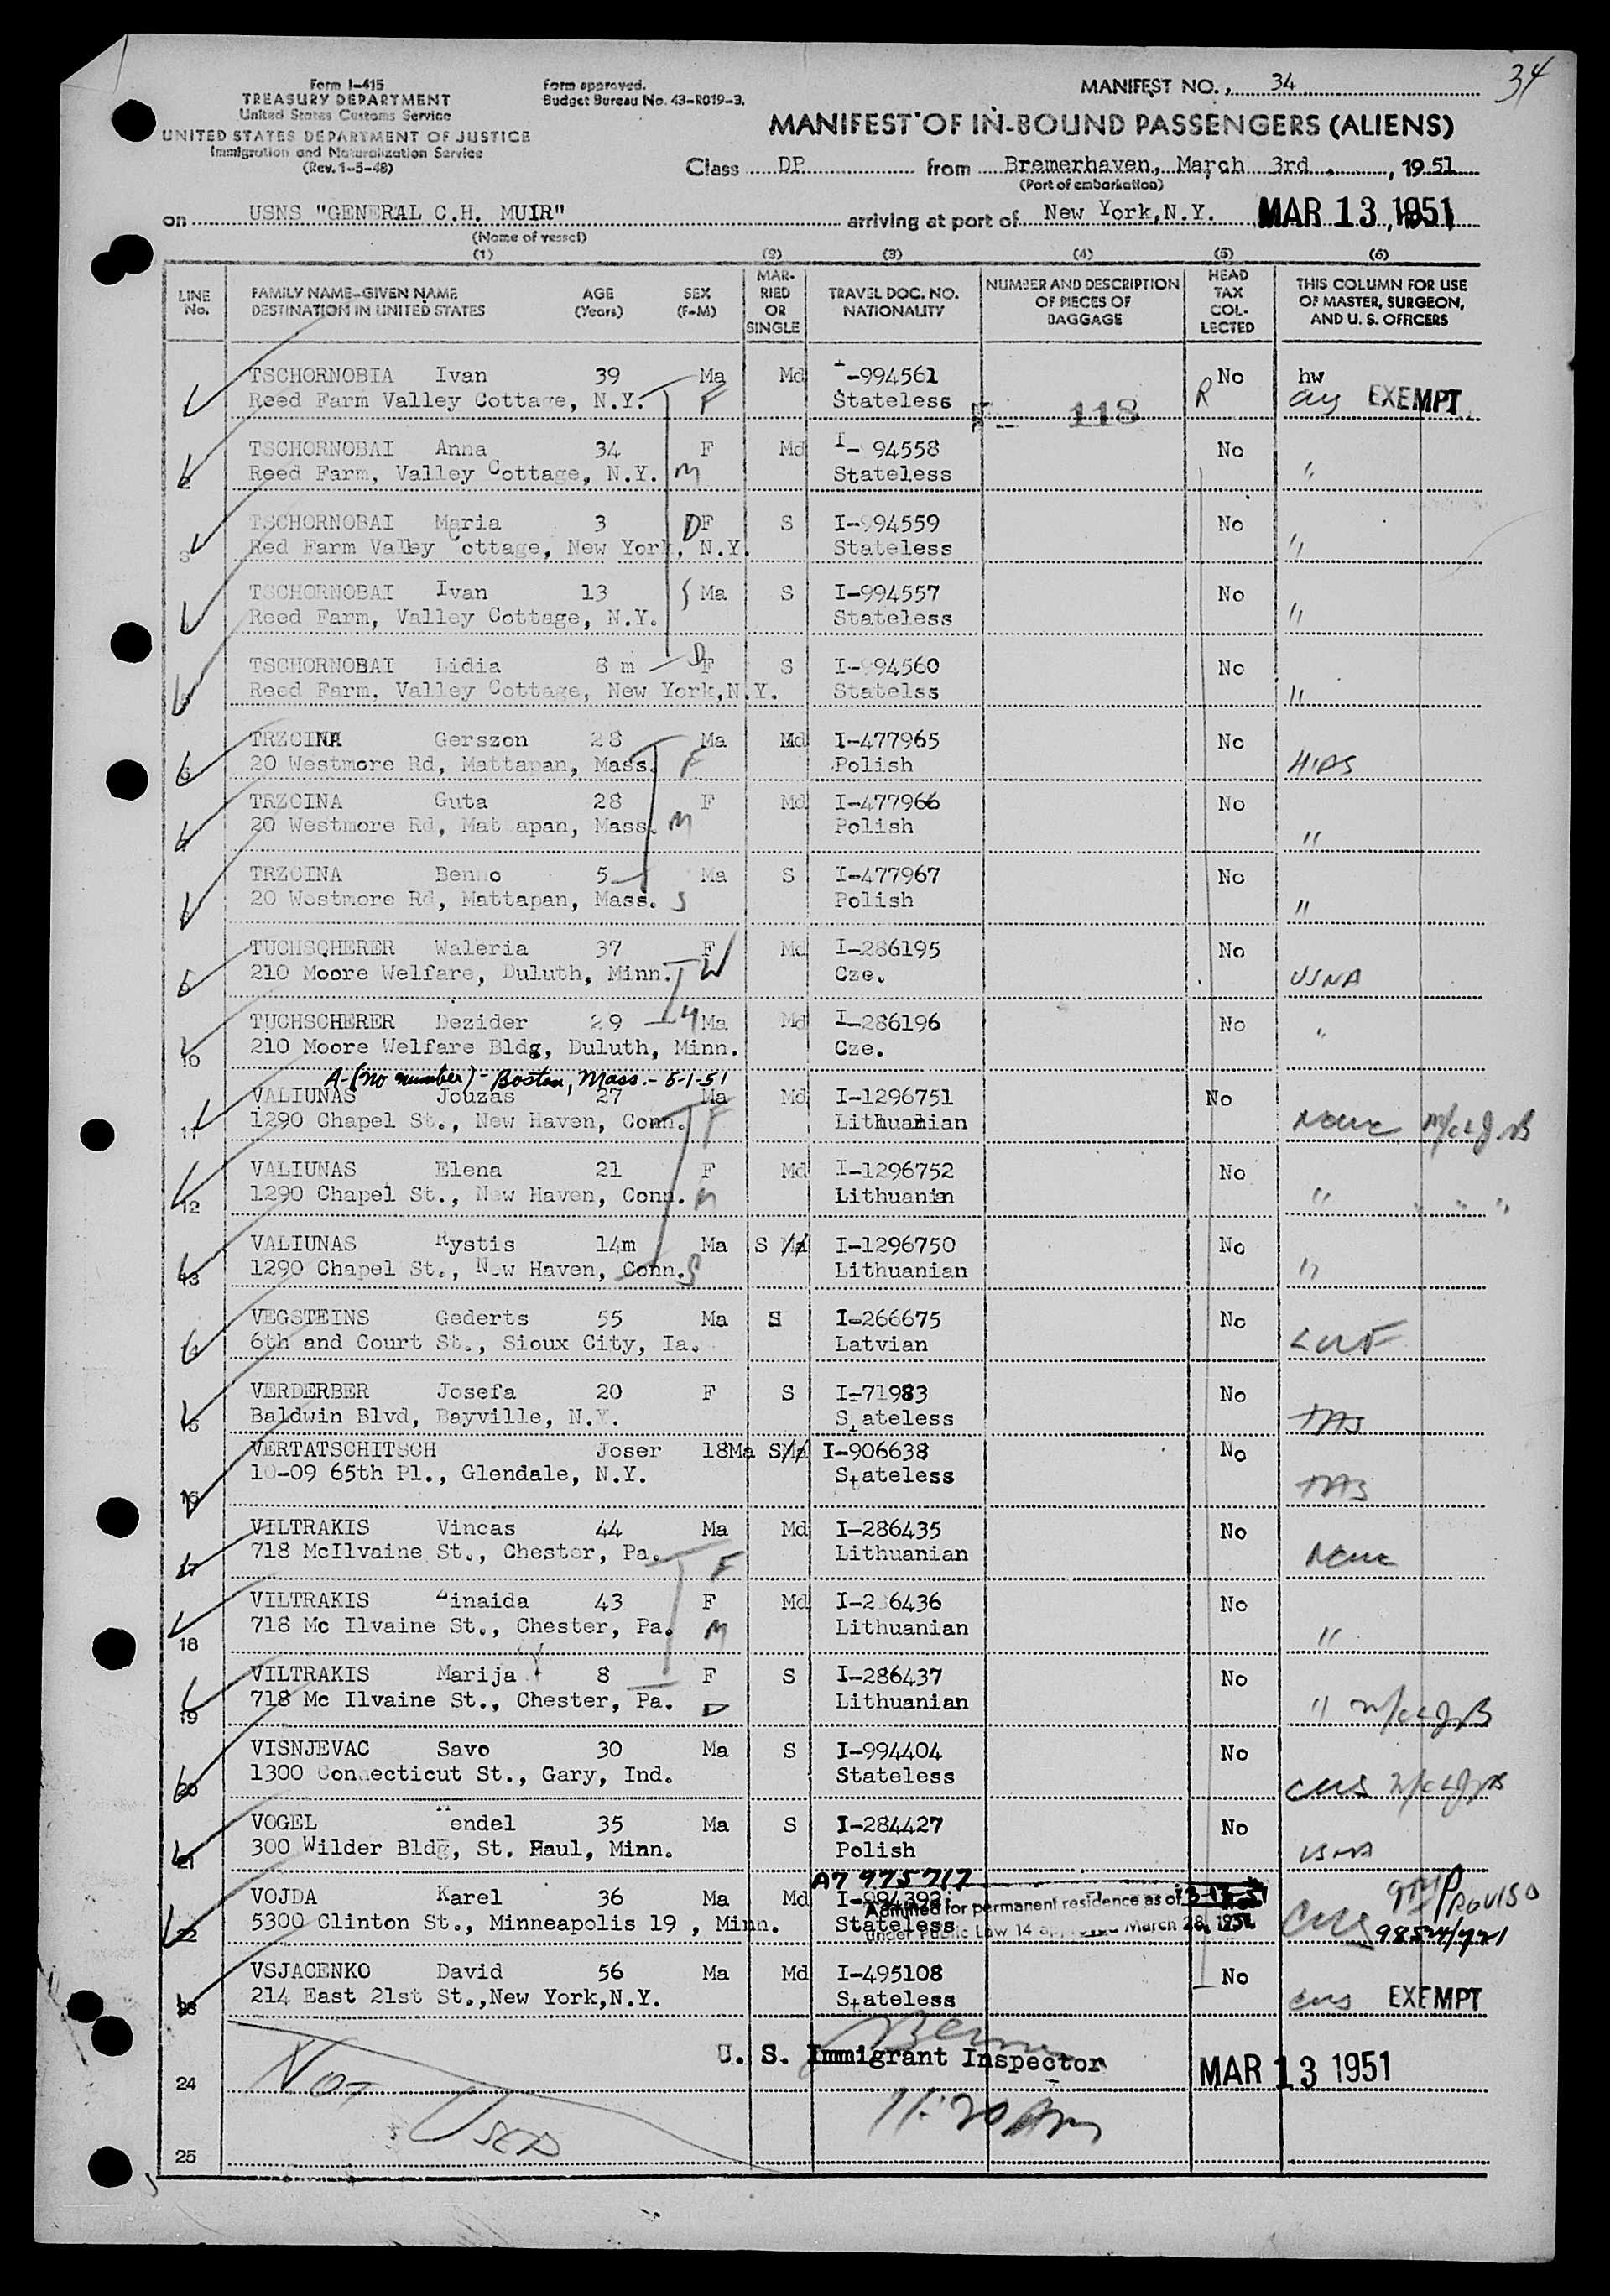 34
Form I-415
TREASURY DEPARTMENT
United States Customs Service
UNITED STATES DEPARTMENT OF JUSTICE
Immigration and Naturalization Service
(Rev. 1-5-48)
Form approved.
Budget Bureau No. 43-R019-3.
MANIFEST NO. 34
MANIFEST OF IN-BOUND PASSENGERS (ALIENS)
Class DP from Bremerhaven, March 3rd, 1951
(Port of embarkation)
on USNS "GENERAL C.H. MUIR" arriving at port of New York, N.Y. MAR 13 1951
(Name of vessel)
(1) (2) (3) (4) (5) (6)
LINE No. FAMILY NAME-GIVEN NAME DESTINATION IN UNITED STATES AGE (Years) SEX (F-M) MARRIED OR SINGLE TRAVEL DOC. NO. NATIONALITY NUMBER AND DESCRIPTION OF PIECES OF BAGGAGE HEAD TAX COLLECTED THIS COLUMN FOR USE OF MASTER, SURGEON, AND U. S. OFFICERS
TSCHORNOBIA Ivan 39 Ma Md I-994561 No hw
Reed Farm Valley Cottage, N.Y. F Stateless 118 R EXEMPT
2 TSCHORNOBAI Anna 34 F Md I- 94558 No
Reed Farm, Valley Cottage, N.Y. M Stateless "
3 TSCHORNOBAI Maria 3 D F S I-994559 No
Red Farm Valley Cottage, New York, N.Y. Stateless "
TSCHORNOBAI Ivan 13 S Ma S I-994557 No
Reed Farm, Valley Cottage, N.Y. Stateless "
TSCHORNOBAI Lidia 8 m D F S I-994560 No
Reed Farm. Valley Cottage, New York,N.Y. Statelss "
6 TRZCINA Gerszon 28 Ma Md I-477965 No
20 Westmore Rd, Mattapan, Mass. F Polish HIAS
TRZCINA Guta 28 F Md I-477966 No
20 Westmore Rd, Mat apan, Mass. M Polish "
TRZCINA Benno 5 Ma S I-477967 No
20 Westmore Rd, Mattapan, Mass. S Polish "
TUCHSCHERER Waleria 37 F Md I-286195 No
210 Moore Welfare, Duluth, Minn. W Cze. USNA
10 TUCHSCHERER Dezider 29 H Ma Md I-286196 No
210 Moore Welfare Bldg, Duluth, Minn. Cze. "
A-(no number)- Boston, Mass. - 5-1-51
11 VALIUNAS Jouzas 27 Ma Md I-1296751 No
1290 Chapel St., New Haven, Conn. F Lithuanian
12 VALIUNAS Elena 21 F Md I-1296752 No
1290 Chapel St., New Haven, Conn. M Lithuanian " " " "
13 VALIUNAS Rystis 14m Ma S I-1296750 No
1290 Chapel St., New Haven, Conn. S Lithuanian "
14 VEGSTEINS Gederts 55 Ma S I-266675 No
6th and Court St., Sioux City, Ia. Latvian
15 VERDERBER Josefa 20 F S I-71983 No
Baldwin Blvd, Bayville, N.Y. Stateless
16 VERTATSCHITSCH Joser 18Ma S I-906638 No
10-09 65th Pl., Glendale, N.Y. Stateless
17 VILTRAKIS Vincas 44 Ma Md I-286435 No
718 McIlvaine St., Chester, Pa. F Lithuanian
18 VILTRAKIS Zinaida 43 F Md I-286436 No
718 Mc Ilvaine St., Chester, Pa. M Lithuanian "
19 VILTRAKIS Marija 8 F S I-286437 No
718 Mc Ilvaine St., Chester, Pa. D Lithuanian "
20 VISNJEVAC Savo 30 Ma S I-994404 No
1300 Connecticut St., Gary, Ind. Stateless
21 VOGEL endel 35 Ma S I-284427 No
300 Wilder Bldg, St. Paul, Minn. Polish USNA
A7 975717
22 VOJDA Karel 36 Ma Md I-994392 9TH PROVISO
5300 Clinton St., Minneapolis 19 , Minn. Stateless
Admitted for permanent residence as of 3-13-51
under Public Law 14 approved March 28, 1951.
23 VSJACENKO David 56 Ma Md I-495108 No
214 East 21st St.,New York,N.Y. Stateless EXEMPT
U. S. Immigrant Inspector MAR 13 1951
24 NOT USED
11:20 Am
25